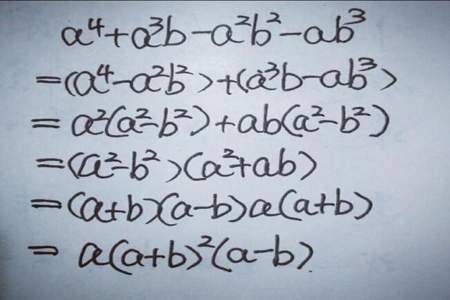 a⁴+a³b-a²b²-ab³
=(a⁴-a²b²)+(a³b-ab³)
=a²(a²-b²)+ab(a²-b²)
=(a²-b²)(a²+ab)
=(a+b)(a-b)a(a+b)
=a(a+b)²(a-b)